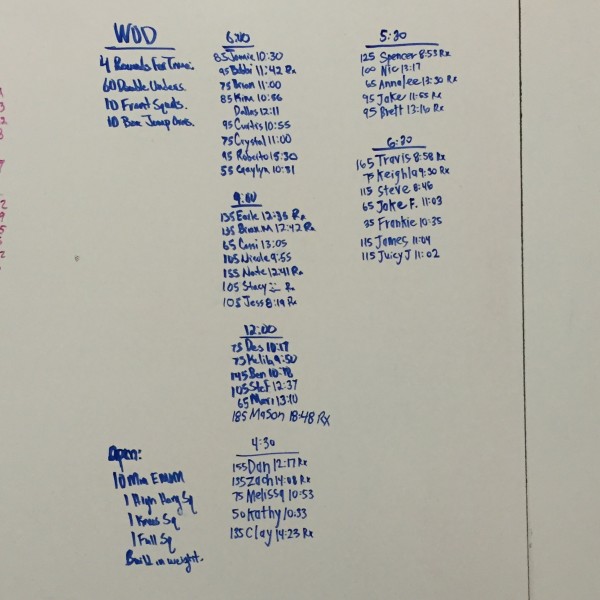 WOD
4 Rounds For Time:
60 Double Unders.
10 Front Squats.
10 Box Jump Overs.
6:00
85 Jamie 10:30
95 Bobbi 11:42 Rx
75 Brian 11:00
85 Kim 10:56
Dallas 12:11
95 Curtis 10:55
75 Crystal 11:00
95 Roberto 15:30
55 Gaylyn 10:31
9:00
135 Earle 12:35 Rx
135 Brian M 12:42 Rx
65 Cami 13:05
105 Nicole 9:55
155 Nate 12:41 Rx
105 Stacy Rx
105 Jess 8:19 Rx
12:00
75 Des 10:17
75 Kelib 9:50
145 Ben 10:18
105 Stef 12:37
65 Mari 13:10
185 Mason 18:48 Rx
4:30
155 Dan 12:17 Rx
135 Zach 14:08 Rx
75 Melissa 10:53
50 Kathy 10:33
135 Clay 14:23 Rx
5:30
125 Spencer 8:53 Rx
100 Nic 13:17
65 Annalee 13:30 Rx
95 Jake 11:55 Rx
95 Brett 13:16 Rx
6:30
165 Travis 8:58 Rx
75 Keighla 9:30 Rx
115 Steve 8:46
65 Jake F. 11:03
35 Frankie 10:35
115 James 11:04
115 Juicy J 11:02
Open:
10 Min EMOM
1 High Hang Sq
1 Knee Sq
1 Full Sq
Build in weight.